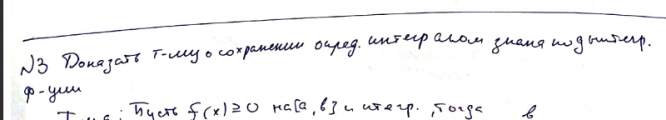 N3 Доказать т-му о сохранении опред. интегралом знака подынтегр.
ф-ции
Т-ма: Пусть f(x)≥0 на [a, b] и интегр., тогда b